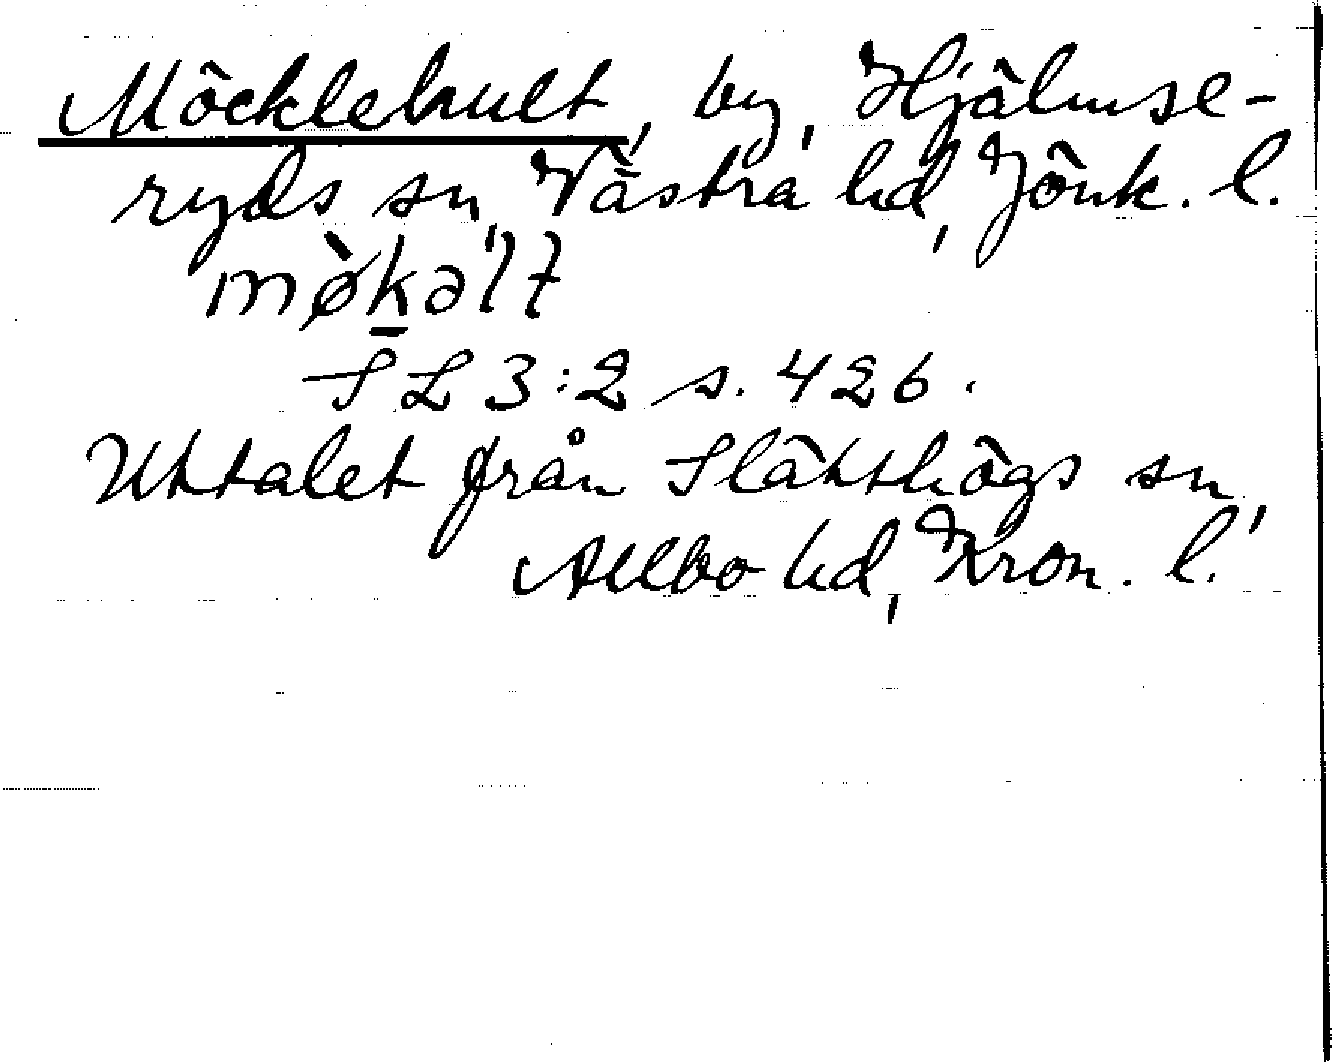 Möcklehult, by, Hjälmse-
ryds sn, Västra hd, Jönk. l.
mø̀kəlt
SL 3:2 s. 426.
Uttalet från Slätthögs sn,
Allbo hd, Kron. l.